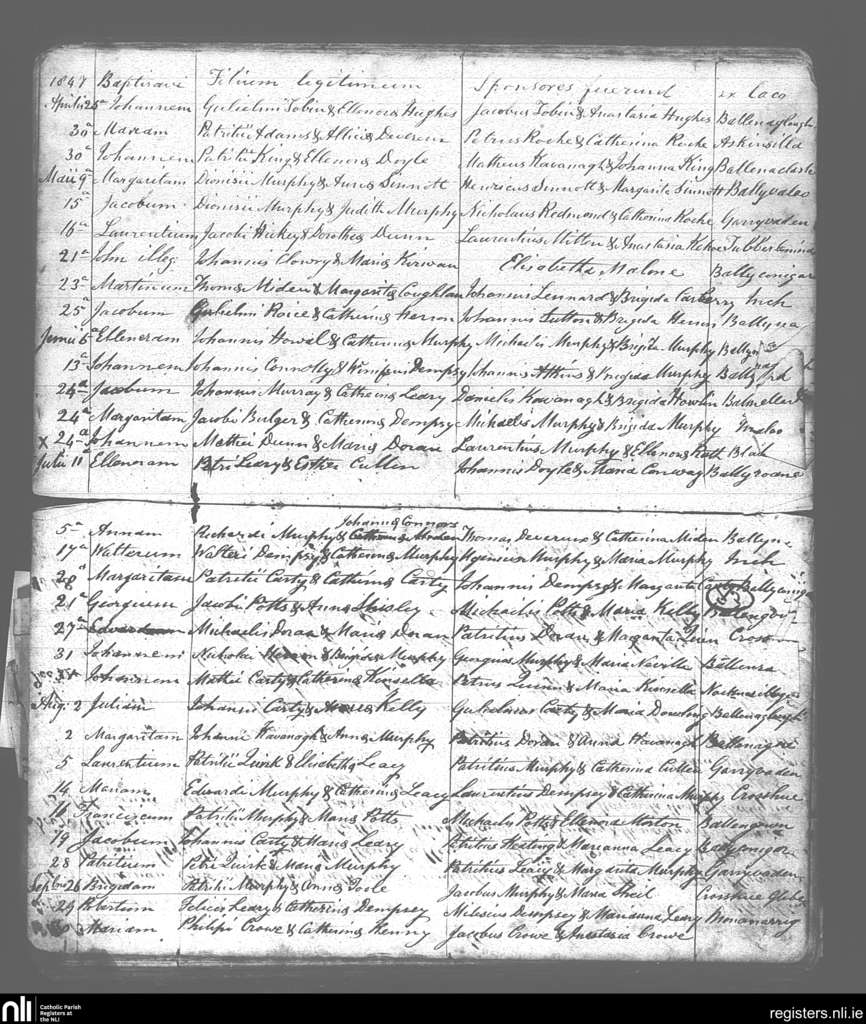 1847 Baptisavi Filium legitimum Sponsores fuerunt ex loco
Aprilii 25a Johannem Gulielmi Tobin & Ellenora Hughes Jacobus Tobin & Anastasia Hughes Ballenaglough
30a Mariam Patritii Adams & Alicia Devereux Petrus Roche & Catherina Roche Askinsilla
30a Johannem Patritii King & Ellenora Doyle Matheus Kavanagh & Johanna King Ballenaclash
Maii 9a Margaritam Dionisii Murphy & Anna Sinnott Henricus Sinnott & Margarita Sinnott Ballyvaloo
15a Jacobum Dionisii Murphy & Judith Murphy Nicholaus Redmond & Catherina Roche Garryvaden
16a Laurentium Jacobi Hickey & Dorothea Dunn Laurentius Mitten & Anastasia Kehoe
21a John illeg Johannis Clowry & Maria Kirwan Elisabetha Malone Ballyconigar
23a Martinum Thoma Miden & Margarita Coughlan Johannis Lennard & Brigida Carberry Inch
25a Jacobum Gulielmi Roice & Catherina Herron Johannis Sutton & Brigida Herron Ballyna
Junii 6a Ellenoram Johannis Howel & Catherina Murphy Michaelis Murphy & Brigida Murphy
13a Johannem Johannis Connolly & Dempsy Johannis & Brigida Murphy
24a Jacobum Johannis Murray & Catherina Leary Danielis Kavanagh & Brigida Howlin
24a Margaritam Jacobi Bulger & Catherina Dempsy Michaelis Murphy & Brigida Murphy
X 24a Johannem Mathei Dunn & Maria Doran Laurentius Murphy & Ellenora
Julii 11a Ellenoram Petri Leary & Esther Cullen Johannis Doyle & Maria Conway Ballyroane
Johanna Connors
5a Annam Richardi Murphy & Thomas Devereux & Catherina Miden Ballyna
17a Walterum Walteri Dempsy & Catherina Murphy Murphy & Maria Murphy Inch
20a Margaritam Patritii Carty & Catherina Carty Johannis Dempsy & Margarita Carty Ballyconigar
21a Georgium Jacobi Potts & Anna Shisley Michaelis Potts & Maria Kelly
27a Michaelis Doran & Maria Doran Patritius Doran & Margarita Quin
31 Johannem Nicholai & Brigida Murphy Georgius Murphy & Maria Neville
Johannem Mathei Carty & Catherina Kinsella Petrus Quinn & Maria Kinsella
Aug. 2 Juliam Johannis Carty & Anna Kelly Gulielmus Carty & Maria Dowling Ballenaglough
2 Margaritam Johannis Kavanagh & Anna Murphy Patritius Doran & Anna Kavanagh
5 Laurentium Patritii Quirk & Elisabetha Leacy Patritius Murphy & Catherina Cullen Garryvaden
14 Mariam Edwardi Murphy & Catherina Leacy Laurentius Dempsey & Catherina Murphy Crosshue
14 Franciscum Patritii Murphy & Maria Potts Michaelis Potts & Ellenora Morton Ballengowan
19 Jacobum Johannes Carty & Maria Leary Patritius Keating & Marianna Leacy Ballyconigar
28 Patritium Petri Quirk & Maria Murphy Patritius Leacy & Margarita Murphy Garryvaden
26 Brigidam Patritii Murphy & Anna Toole Jacobus Murphy & Maria Crosshue Glebe
29 Robertum Felicis Leary & Catherina Dempsey Milesius Dempsey & Marianna Leary Monamarrig
30 Mariam Philipi Crowe & Catherina Kenny Jacobus Crowe & Anastasia Crowe
nli
Catholic Parish
Registers at
the NLI
registers.nli.ie